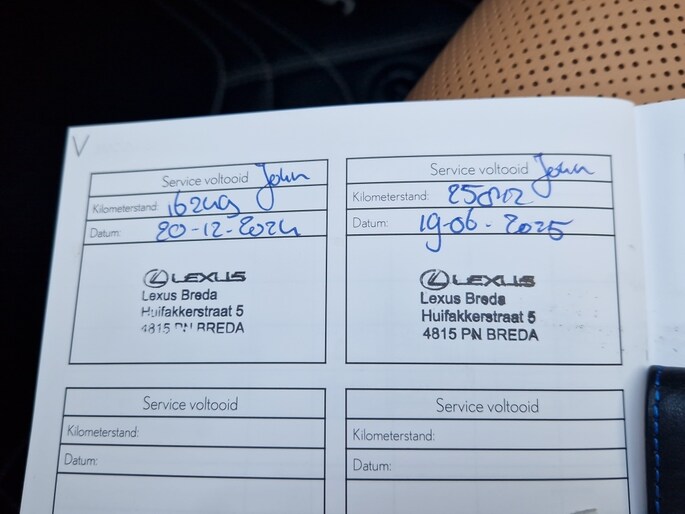 V
Service voltooid John
Kilometerstand: 16249
Datum: 20-12-2024
LEXUS
Lexus Breda
Huifakkerstraat 5
4815 PN BREDA
Service voltooid John
Kilometerstand:
Datum: 19-06-2025
LEXUS
Lexus Breda
Huifakkerstraat 5
4815 PN BREDA
Service voltooid
Kilometerstand:
Datum:
Service voltooid
Kilometerstand:
Datum: